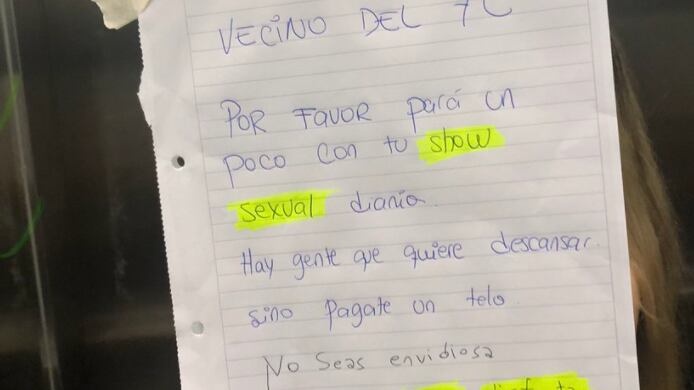 VECINO DEL 7C
POR FAVOR pará un
poco con tu show
sexual diario.
Hay gente que quiere descansar.
sino pagate un telo
No Seas envidiosa